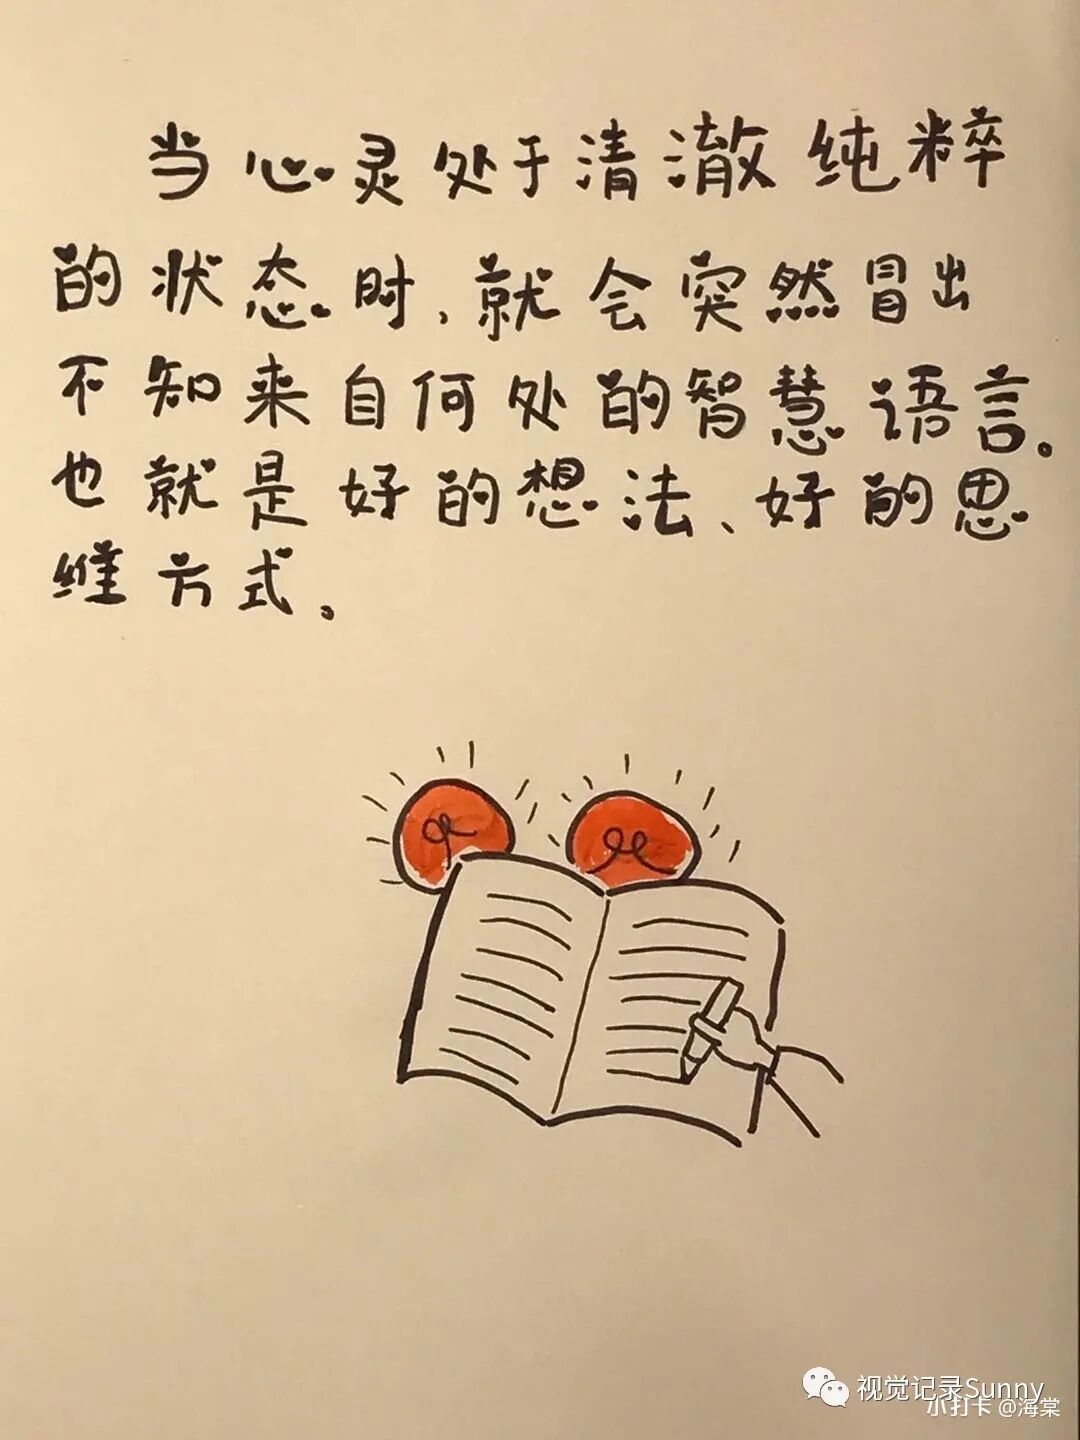 当心灵处于清澈纯粹
的状态时,就会突然冒出
不知来自何处的智慧语言。
也就是好的想法、好的思
维方式。
视觉记录Sunny
小打卡 @海棠